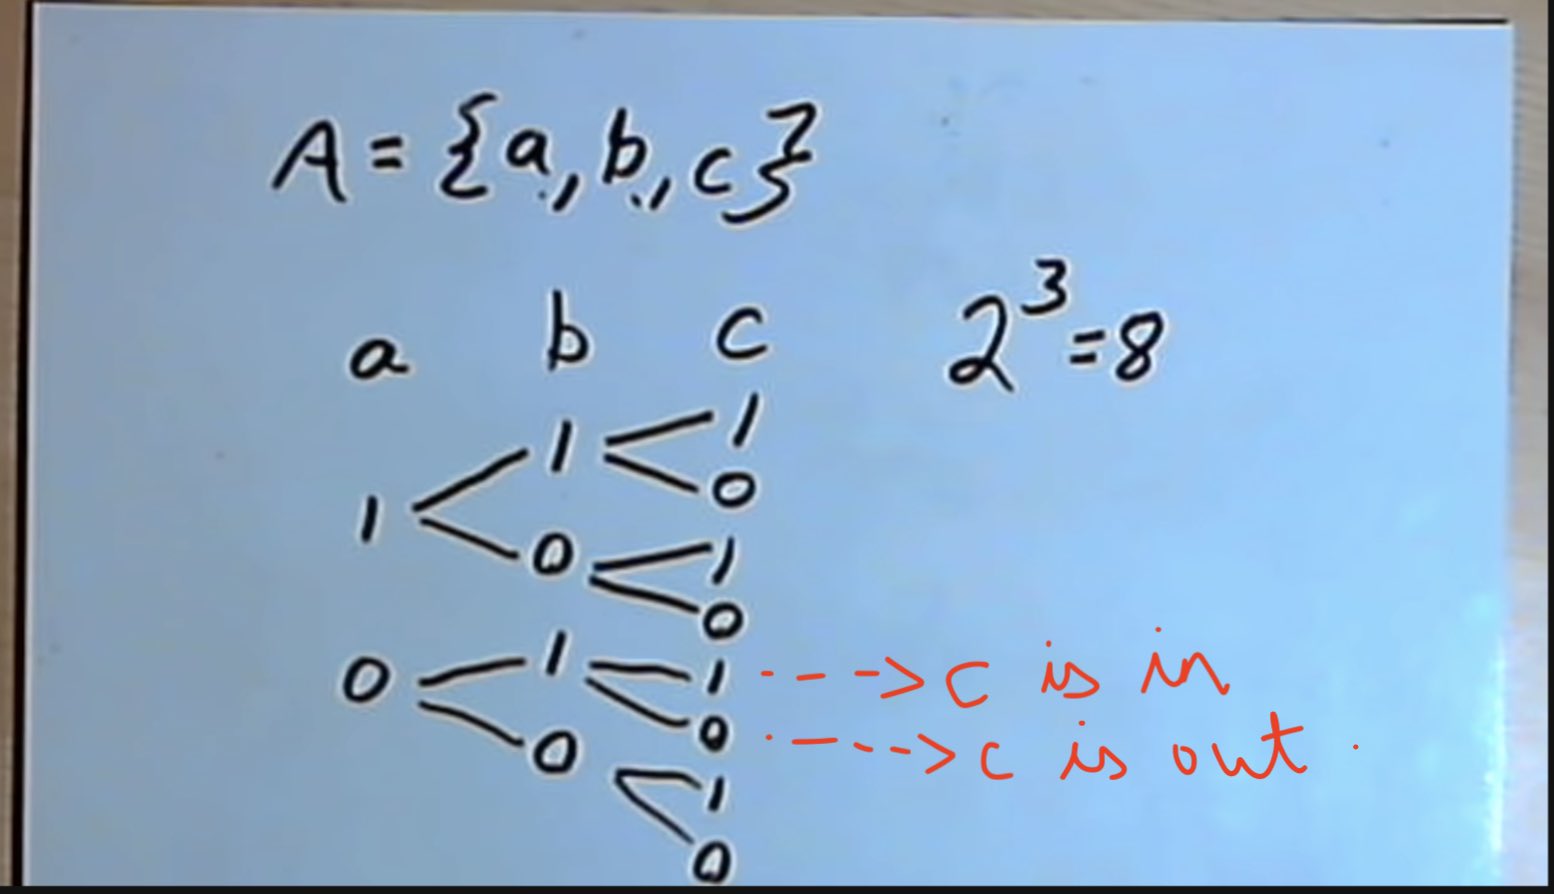 A = {a, b, c}
a b c
2³ = 8
1
1
0
1
0
1
0
0
1
1 ---> c is in
0 ---> c is out.
0
1
0